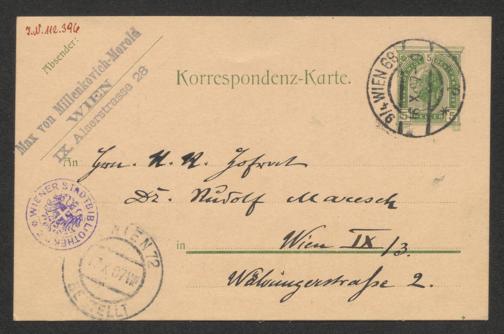 J.N. 112.396
Absender:
Max von Millenkovich-Morold
WIEN
IX Alserstrasse 28
Korrespondenz-Karte.
9/4 WIEN 68
5
5
An Hrn. K. K. Hofrat
Dr. Rudolf Maresch
in Wien IX/3.
Währingerstraße 2.
WIENER STADTBIBLIOTHEK
WIEN 72
BESTELLT